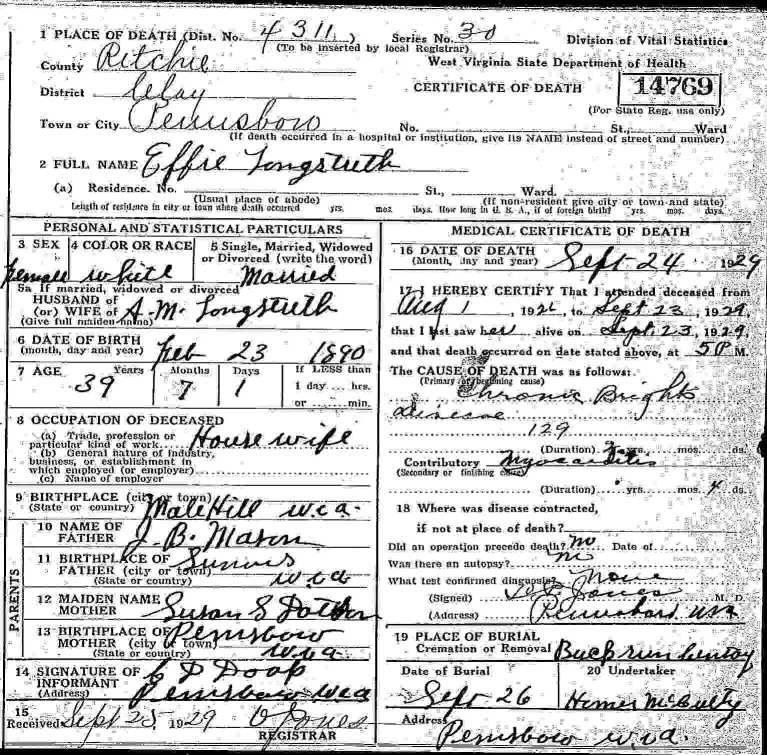 1 PLACE OF DEATH (Dist. No. 4311.) Series No. 30 Division of Vital Statistics
(To be inserted by local Registrar)
County Ritchie West Virginia State Department of Health
District Clay CERTIFICATE OF DEATH 14769
(For State Reg. use only)
Town or City Pennsboro No. St., Ward
(If death occurred in a hospital or institution, give its NAME instead of street and number)
2 FULL NAME Effie Longstreth
(a) Residence. No. St., Ward.
(Usual place of abode) (If non-resident give city or town and state)
Length of residence in city or town where death occurred yrs. mos. days. How long in U. S. A., if of foreign birth? yrs. mos. days.
PERSONAL AND STATISTICAL PARTICULARS
3 SEX 4 COLOR OR RACE 5 Single, Married, Widowed
or Divorced (write the word)
Female White Married
5a If married, widowed or divorced
HUSBAND OF
(or) WIFE of A. M. Longstreth
(Give full maiden name)
6 DATE OF BIRTH
(month, day and year) Feb 23 1890
7 AGE Years Months Days If LESS than
39 7 1 1 day hrs.
or min.
8 OCCUPATION OF DECEASED
(a) Trade, profession or
particular kind of work House wife
(b) General nature of industry,
business, or establishment in
which employed (or employer)
(c) Name of employer
9 BIRTHPLACE (city or town)
(State or country) Hill W.Va.
10 NAME OF
FATHER J. B. Mason
11 BIRTHPLACE OF
FATHER (city or town)
(State or country) W.Va
12 MAIDEN NAME
MOTHER Susan S
13 BIRTHPLACE OF Pennsboro
MOTHER (city or town)
(State or country) W.Va
PARENTS
14 SIGNATURE OF
INFORMANT
(Address) Pennsboro W.Va
15
Received Sept 25 1929 Jones
REGISTRAR
MEDICAL CERTIFICATE OF DEATH
16 DATE OF DEATH
(Month, day and year) Sept 24 1929
17 I HEREBY CERTIFY That I attended deceased from
Aug 1, 192 , to Sept 23, 1929,
that I last saw her alive on Sept. 23, 1929,
and that death occurred on date stated above, at 5 P M.
The CAUSE OF DEATH was as follows:
(Primary or beginning cause)
Chronic Brights
Disease
129
(Duration) yrs. mos. ds.
Contributory Myocarditis
(Secondary or finishing cause)
(Duration) yrs. mos. 4 ds.
18 Where was disease contracted,
if not at place of death?
Did an operation precede death? no Date of
Was there an autopsy? no
What test confirmed diagnosis? None
(Signed) Jones M. D.
(Address) Pennsboro W.Va
19 PLACE OF BURIAL
Cremation or Removal Buck run
Date of Burial 20 Undertaker
Sept 26 Homer McCulty
Address
Pennsboro W.Va.